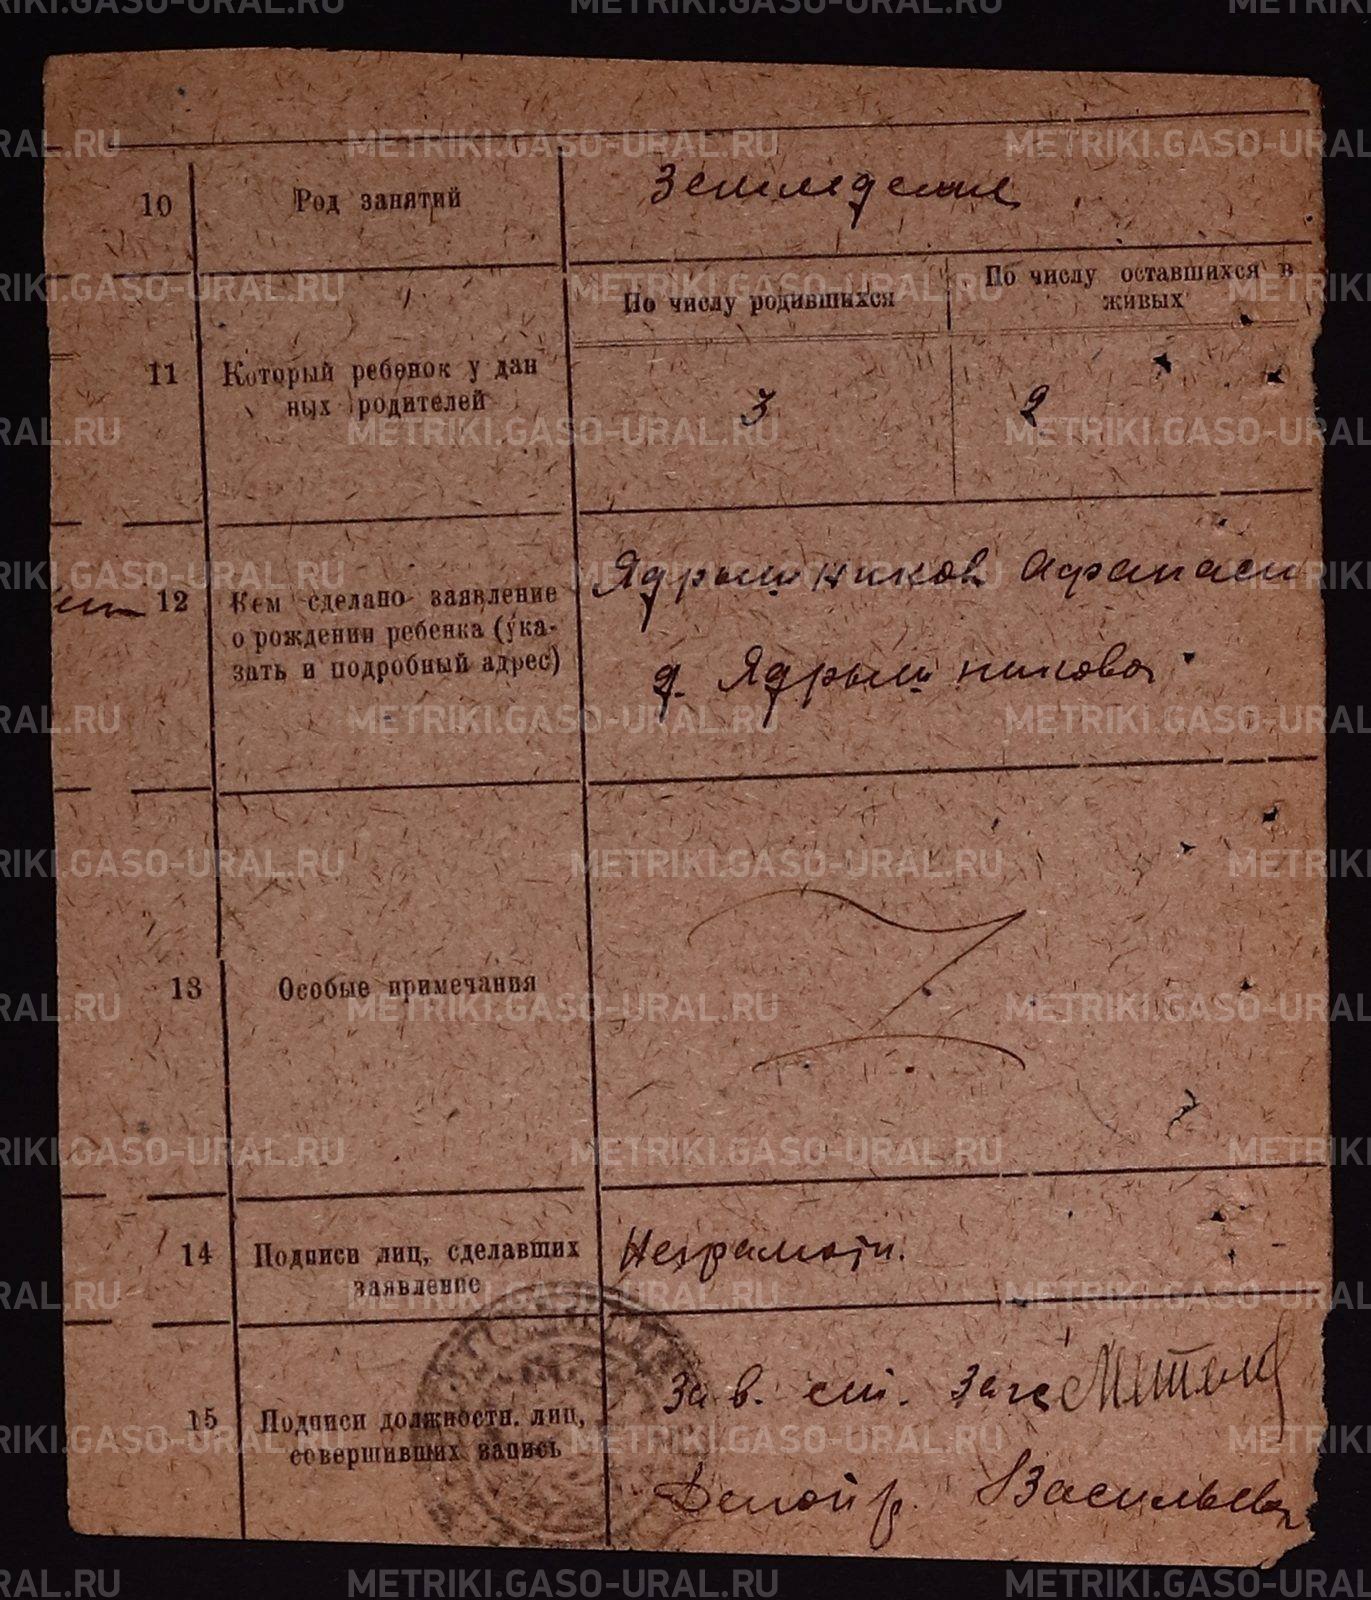 10 Род занятий Земледелие
По числу родившихся По числу оставшихся в
живых
11 Который ребенок у дан
ных родителей 3 2
12 Кем сделано заявление Ядрышников Афанаси
о рождении ребенка (ука-
зать и подробный адрес) д. Ядрышникова
13 Особые примечания
14 Подписи лиц, сделавших Неграмотн.
заявление
15 Подписи должностн. лиц, Зав. ст. Загс
совершивших запись Делопр. Васильева
METRIKI.GASO-URAL.RU